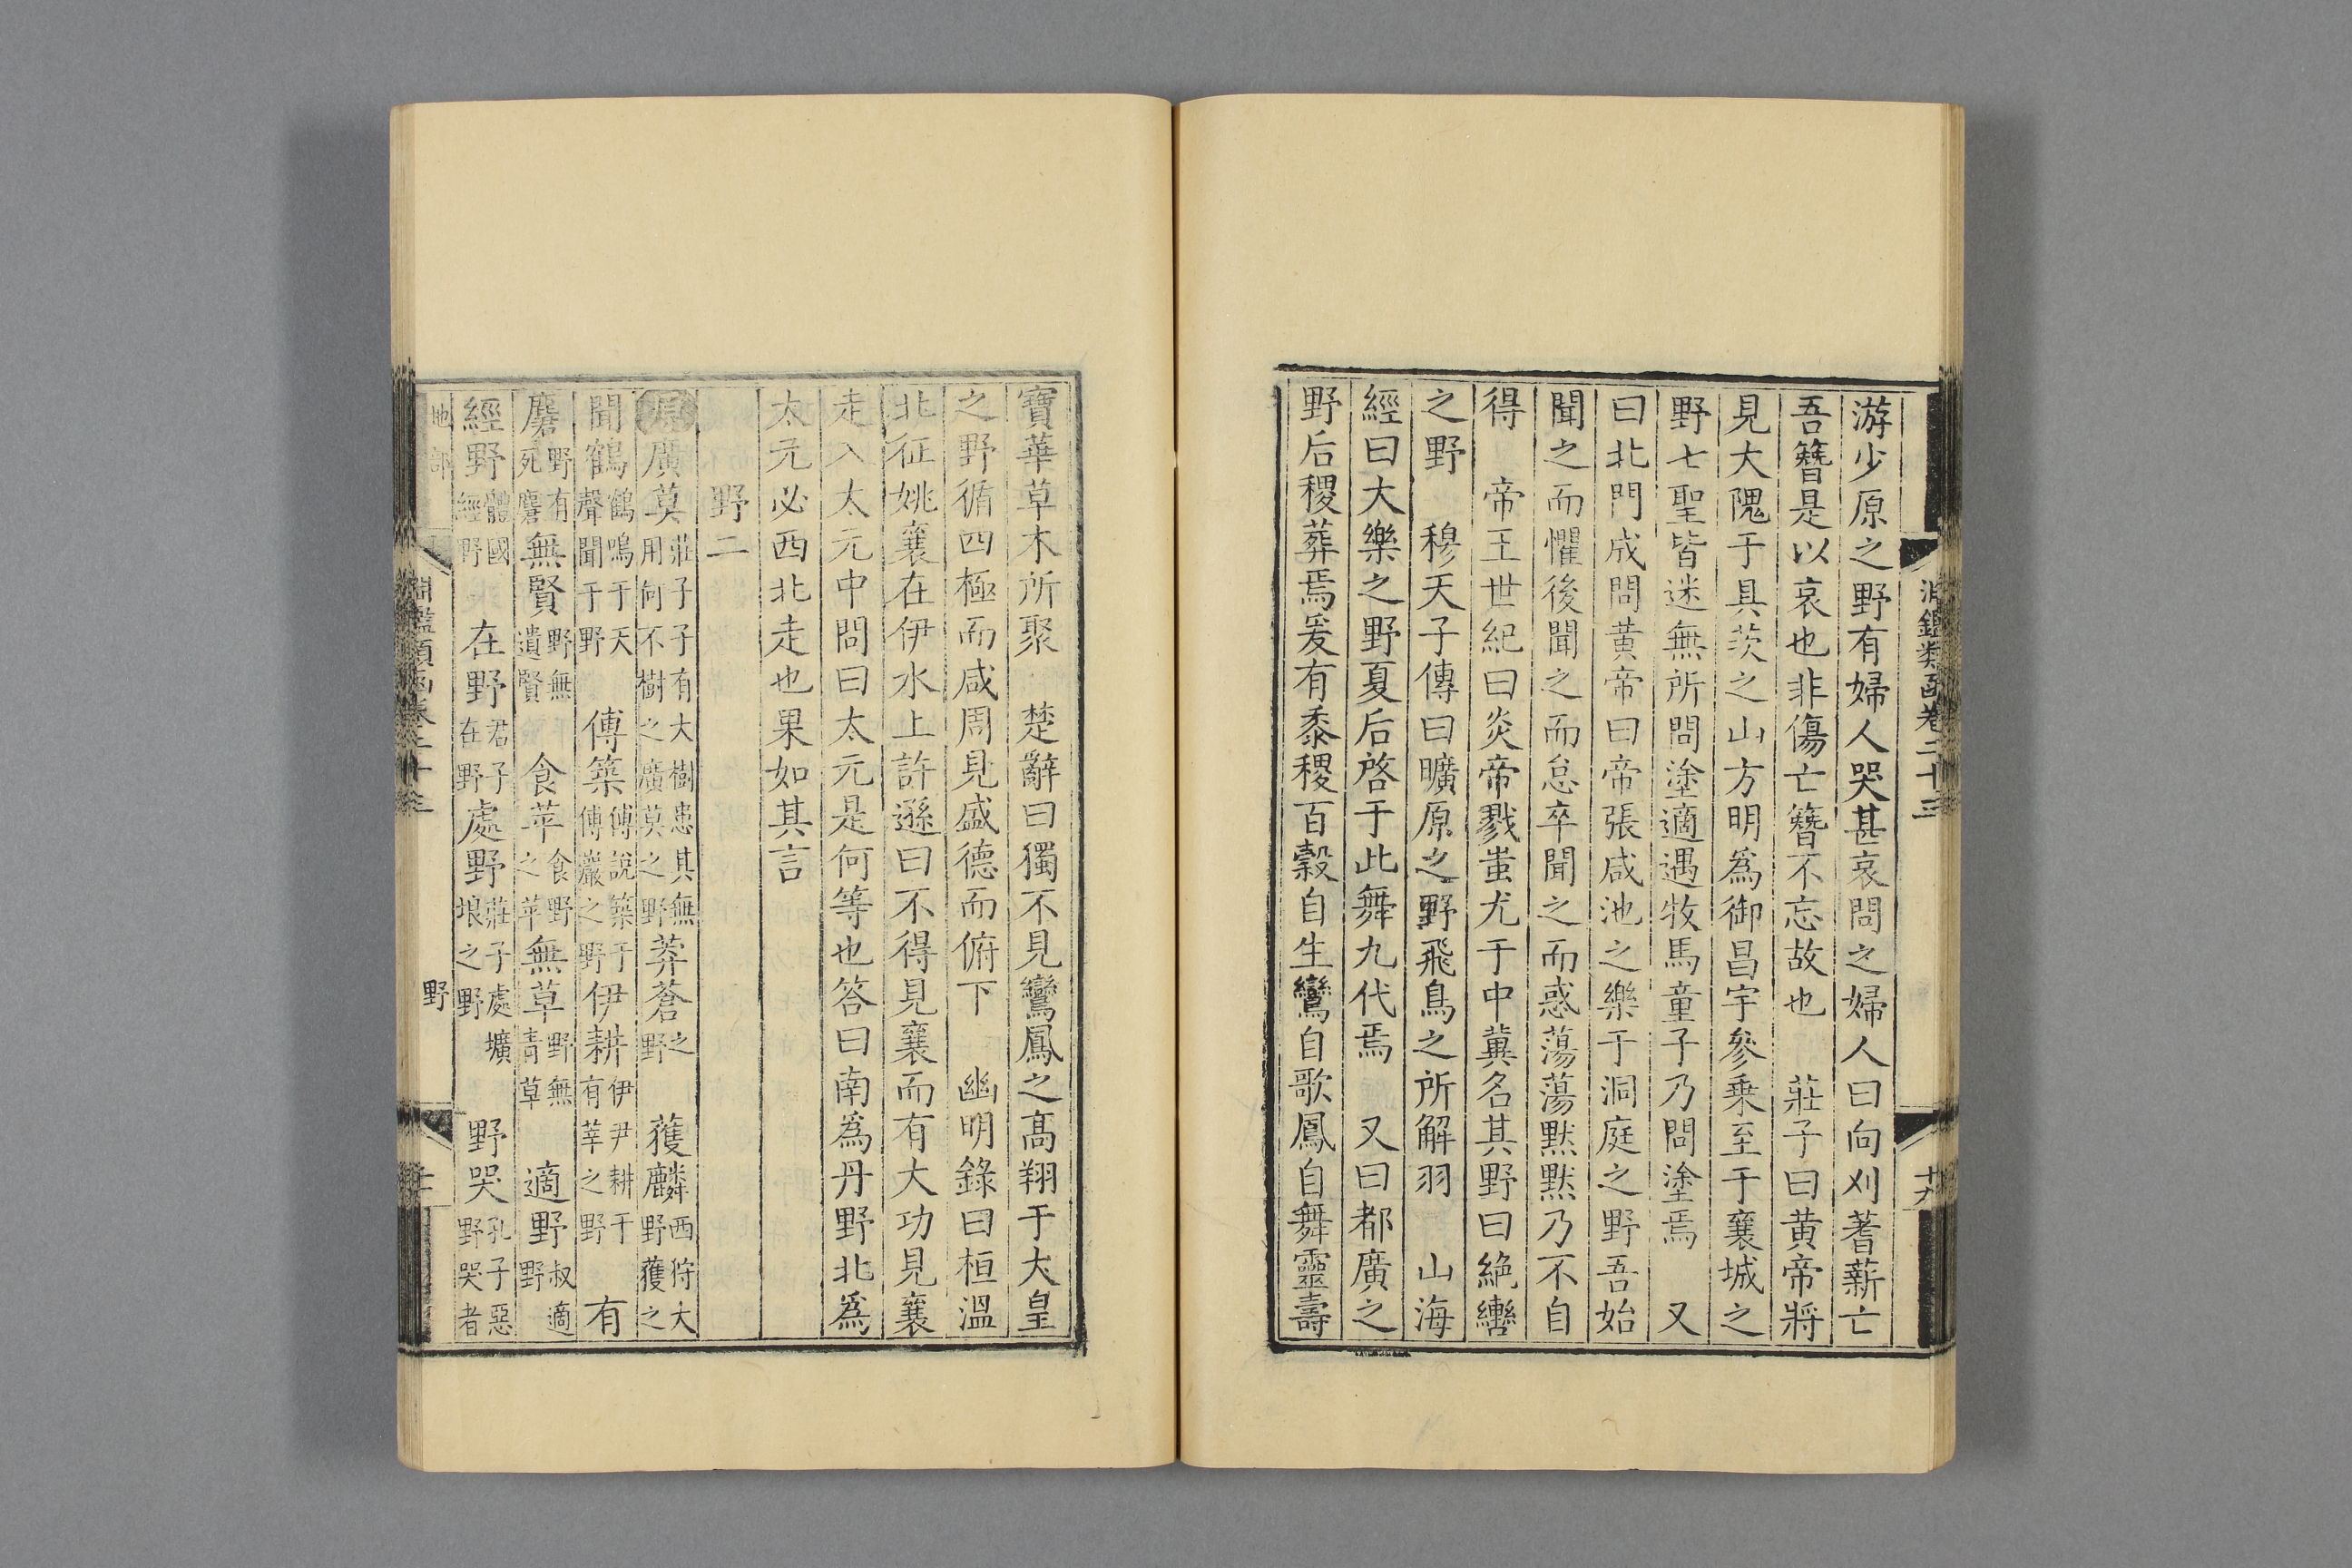 淵鑑類函卷二十三
十九
游少原之野有婦人哭甚哀問之婦人曰向刈蓍薪亡
吾簪是以哀也非傷亡簪不忘故也　莊子曰黃帝將
見大隗于具茨之山方明爲御昌宇參乗至于襄城之
野七聖皆迷無所問塗適遇牧馬童子乃問塗焉　又
曰北門成問黃帝曰帝張咸池之樂于洞庭之野吾始
聞之而懼後聞之而怠卒聞之而惑蕩蕩默默乃不自
得　帝王世紀曰炎帝戮蚩尤于中冀名其野曰絶轡
之野　穆天子傳曰曠原之野飛鳥之所解羽　山海
經曰大樂之野夏后啓于此舞九代焉　又曰都廣之
野后稷葬焉爰有黍稷百穀自生鸞自歌鳳自舞靈壽
寶華草木所聚　楚辭曰獨不見鸞鳳之高翔于大皇
之野循四極而咸周見盛德而俯下　幽明錄曰桓溫
北征姚襄在伊水上許遜曰不得見襄而有大功見襄
走入太元中問曰太元是何等也答曰南爲丹野北爲
太元必西北走也果如其言
野二
原廣莫莊子子有大樹患其無用何不樹之廣莫之野莽蒼之野　獲麟西狩大野獲之
聞鶴鶴鳴于天聲聞于野　傅築傅說築于傅巖之野伊耕伊尹耕于有莘之野　有
麕野有死麕無賢野無遺賢　食苹食野之苹無草野無青草　適野叔適野
經野體國經野　在野君子在野處野莊子處壙埌之野　野哭孔子惡野哭者
地部
淵鑑類函卷二十三
野